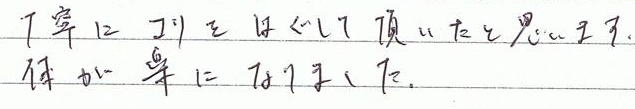 丁寧にコリをほぐして頂いたと思います.
体が楽になりました.